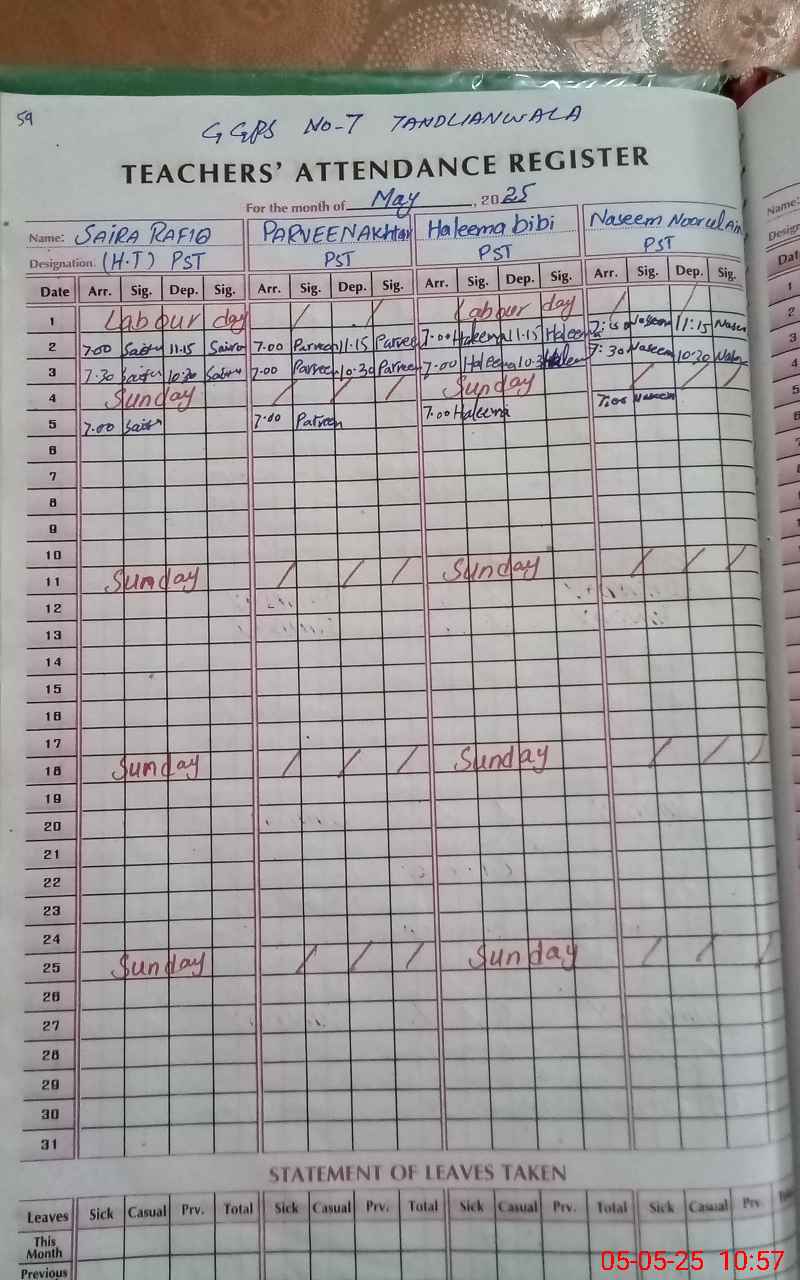 59
GGPS No-7 TANDLIANWALA
TEACHERS' ATTENDANCE REGISTER
For the month of May, 2025
Name: SAIRA RAFIQ PARVEEN Akhtar Haleema bibi Naseem Noor ul Ain
Designation: (H.T) PST PST PST PST
Date Arr. Sig. Dep. Sig. Arr. Sig. Dep. Sig. Arr. Sig. Dep. Sig. Arr. Sig. Dep. Sig.
1 Labour day / / Labour day / /
2 7.00 Saira 11.15 Saira 7.00 Parveen 11.15 Parveen 7.00 Haleema 11.15 Haleema Naseem 11:15 Naseem
3 7.30 Saira 10:30 Saira 7.00 Parveen 10.30 Parveen 7.00 Haleema 10.3 Haleem 7:30 Naseem 10:30
4 Sunday / / / Sunday / / /
5 7.00 Saira 7.00 Parveen 7.00 Haleema 7.00 Naseem
6
7
8
9
10
11 Sunday / / / Sunday / / /
12
13
14
15
16
17
18 Sunday / / / Sunday / / /
19
20
21
22
23
24
25 Sunday / / / Sunday / / /
26
27
28
29
30
31
STATEMENT OF LEAVES TAKEN
Leaves Sick Casual Prv. Total Sick Casual Prv. Total Sick Casual Prv. Total Sick Casual Prv.
This
Month
Previous
Name:
Design
Dat
1
2
3
4
5
6
05-05-25 10:57